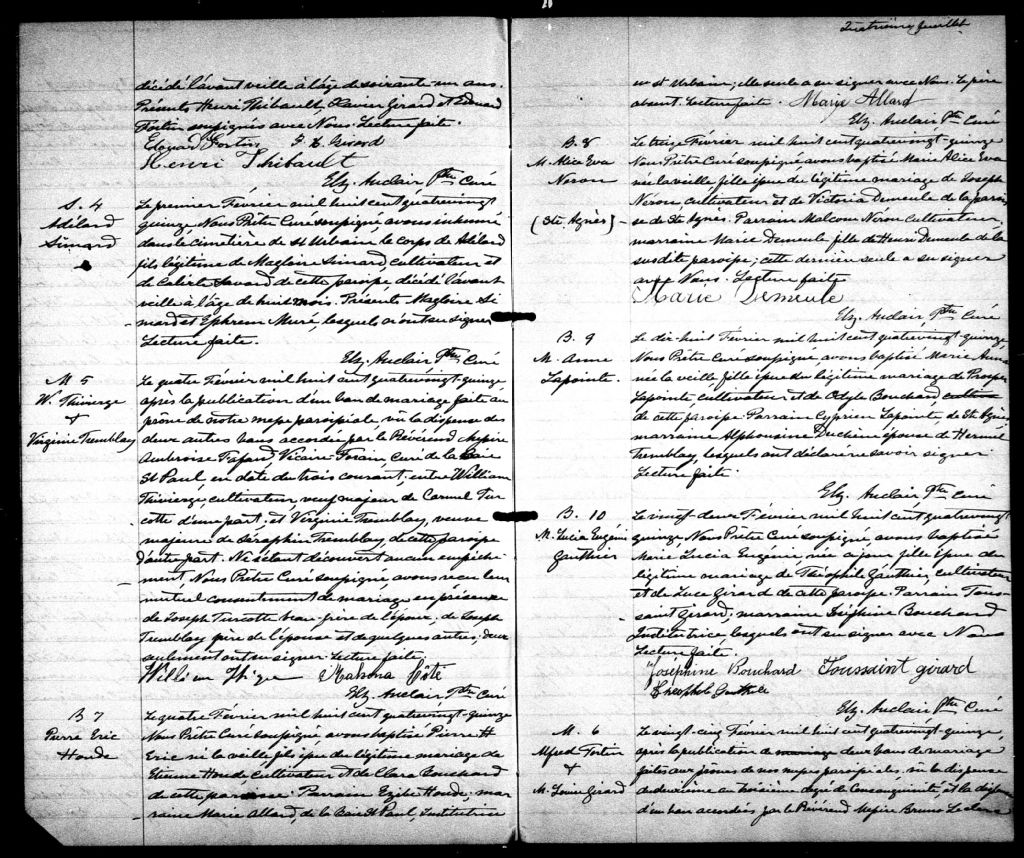 décédé l'avant veille à l'âge de soixante un ans.
Présents Henri Thibault, Xavier Girard et Edouard
Fortin soussignés avec Nous. Lecture faite.
Edouard Fortin F X Girard
Henri Thibault
Elz. Auclair Ptre Curé
S. 4
Adélard
Simard
Le premier Février mil huit cent quatrevingt
quinze, Nous Prêtre Curé soussigné, avons inhumé
dans le cimetière de St Urbain le corps de Adélard
fils légitime de Magloire Simard, cultivateur et
de Calixte Savard de cette paroisse, décédé l'avant
veille à l'âge de huit mois. Présents Magloire Si
mard et Ephrem Muré, lesquels n'ont su signer
Lecture faite.
Elz. Auclair Ptre Curé
M 5
W. Thivierge
+
Virginie Tremblay
Le quatre Février mil huit cent quatrevingt-quinze
après la publication d'un ban de mariage faite au
prône de notre messe paroissiale, vû la dispense des
deux autres bans accordée par le Révérend Messire
Ambroise Fafard, Vicaire Forain, Curé de la Baie
St Paul, en date du trois courant, entre William
Thivierge, cultivateur, veuf majeur de Carmel Tur
cotte d'une part, et Virginie Tremblay, veuve
majeure de Séraphin Tremblay de cette paroisse
d'autre part. Ne s'étant découvert aucun empêche
ment Nous Prêtre Curé soussigné avons reçu leur
mutuel consentement de mariage en présence
de Joseph Turcotte beau-père de l'époux, de Joseph
Tremblay père de l'épouse et de quelques autres; deux
seulement ont su signer. Lecture faite.
William Côté
Elz. Auclair Ptre Curé
B 7
Pierre Eric
Houde
Le quatre Février mil huit cent quatrevingt-quinze
Nous Prêtre Curé soussigné avons baptisé Pierre H
Eric né la veille fils issu du légitime mariage de
Etienne Houde Cultivateur et de Clara Bouchard
de cette paroisse. Parrain Houde, mar
raine Marie Allard, de la Baie St Paul, Institutrice
Quatrième feuillet
en St Urbain; elle seule a su signer avec Nous. Le père
absent. Lecture faite. Marie Allard
Elz. Auclair Ptre Curé
B. 8
M. Alice Eva
Neron
(Ste Agnès)
Le treize Février mil huit cent quatrevingt-quinze
Nous Prêtre Curé soussigné avons baptisé Marie Alice Eva
née la veille, fille issue du légitime mariage de Joseph
Neron, cultivateur et de Victoria Demeule de la parois
se de Ste Agnès. Parrain Malcom Neron cultivateur,
marraine Marie Demeule fille de Henri Demeule de la
susdite paroisse; cette dernière seule a su signer
avec Nous. Lecture faite
Marie Demeule
Elz. Auclair Ptre Curé
B. 9
M. Anne
Lapointe.
Le dix huit Février mil huit cent quatrevingt-quinze
Nous Prêtre Curé soussigné, avons baptisé Marie Anne
née la veille fille issue du légitime mariage de Prosper
Lapointe cultivateur et de Odyle Bouchard,
de cette paroisse Parrain Cyprien Lapointe, de Ste Agnès
marraine Alphonsine Duchène épouse de Herménil
Tremblay, lesquels ont déclaré ne savoir signer
Lecture faite.
Elz. Auclair Ptre Curé
B. 10
M. Lucia Eugénie
Gauthier
Le vingt-deux Février mil huit cent quatrevingt
quinze, Nous Prêtre Curé soussigné, avons baptisé
Marie Lucia Eugénie, née ce jour, fille issue du
légitime mariage de Théophile Gauthier, cultivateur
et de Luce Girard de cette paroisse. Parrain Tous
saint Girard; marraine Joséphine Bouchard
Institutrice, lesquels ont su signer avec Nous
Lecture faite.
Joséphine Bouchard Toussaint girard
Théophile Gauthier
Elz. Auclair Ptre Curé
M. 6
Alfred Fortin
+
M. Louise Girard
Le vingt-cinq Février mil huit cent quatrevingt-quinze,
après la publication de mariage deux bans de mariage
faites aux prônes de nos messes paroissiales, vû la dispense
du deuxième au troisième degré de Consanguinité, et la dispense
d'un ban accordées par le Révérend Messire Bruno Leclerc